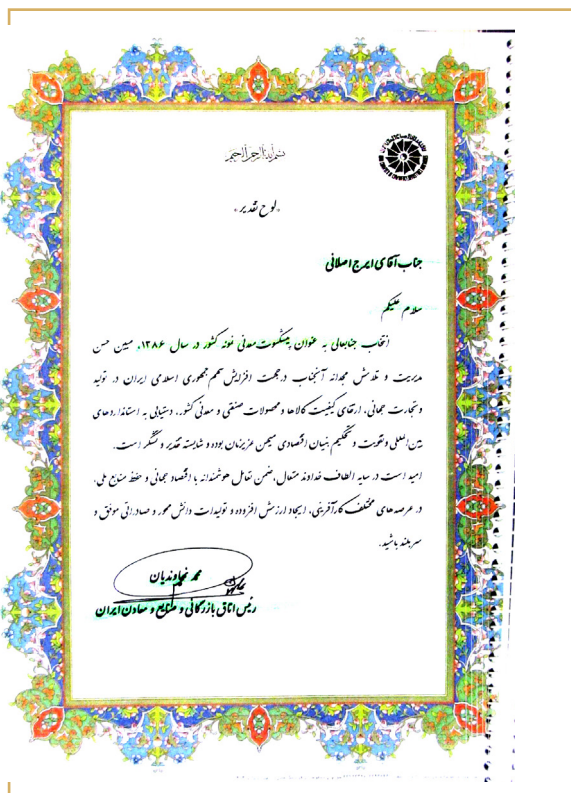 بسم الله الرحمن الرحیم
«لوح تقدیر»
جناب آقای ایرج اصلانی
سلام علیکم
انتخاب جنابعالی به عنوان پیشکسوت معدنی نمونه کشور در سال ۱۳۸۶، مبین حسن
مدیریت و تلاش مجدانه آنجناب در جهت افزایش سهم جمهوری اسلامی ایران در تولید
و تجارت جهانی، ارتقای کیفیت کالاها و محصولات صنعتی و معدنی کشور، دستیابی به استانداردهای
بین‌المللی و تقویت و تحکیم بنیان اقتصادی میهن عزیزمان بوده و شایسته تقدیر و تشکر است.
امید است در سایه الطاف خداوند متعال، ضمن تعامل هوشمندانه با اقتصاد جهانی و حفظ منابع ملی،
در عرصه‌های مختلف کارآفرینی، ایجاد ارزش افزوده و تولیدات دانش محور و صادراتی موفق و
سربلند باشید.
محمد نهاوندیان
رئیس اتاق بازرگانی و صنایع و معادن ایران